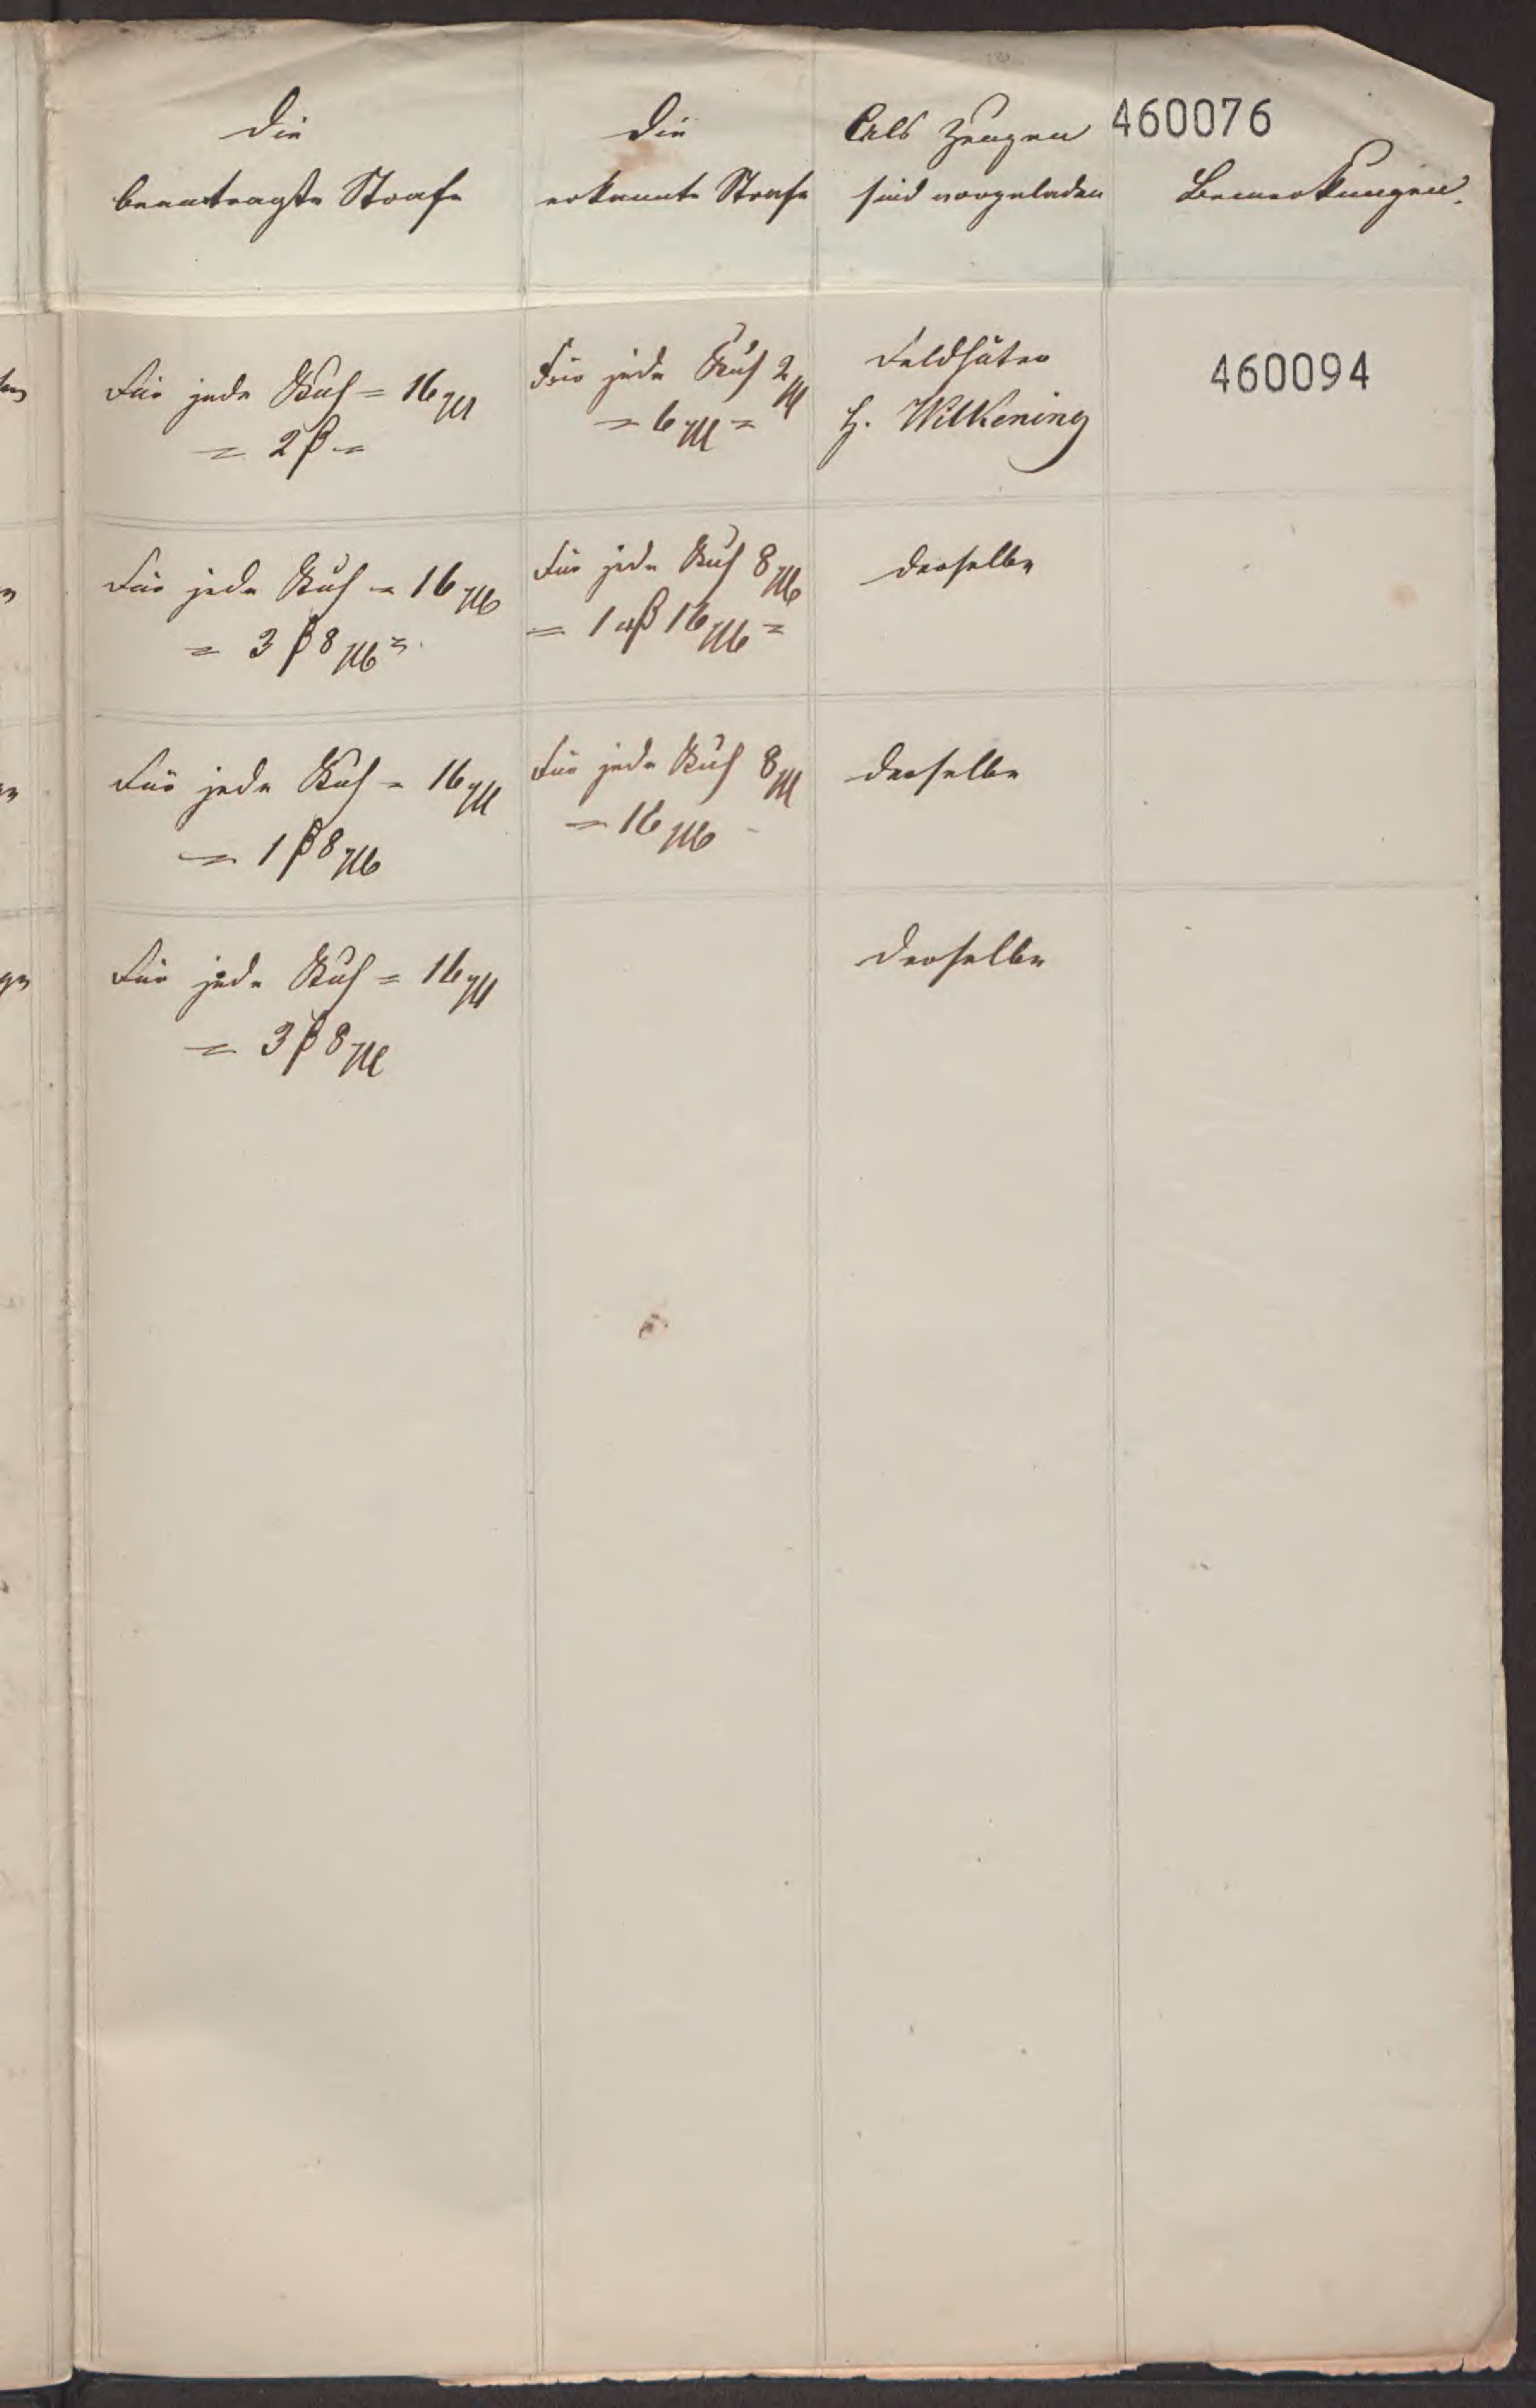 460076
Die
beantragte Strafe
Die
erkannte Strafe
Als Zeugen
sind vorgeladen
Bemerkungen.
Für jede Kuh = 16 Mg
= 2 β =
Für jede Kuh 2 Mg
= 6 Mg =
Feldhüter
H. Wilkening
460094
Für jede Kuh = 16 Mg
= 3 β 8 Mg =
Für jede Kuh 8 Mg
= 1 β 16 Mg =
derselbe
Für jede Kuh = 16 Mg
= 1 β 8 Mg
Für jede Kuh 8 Mg
= 16 Mg
derselbe
Für jede Kuh = 16 Mg
= 3 β 8 Mg
derselbe